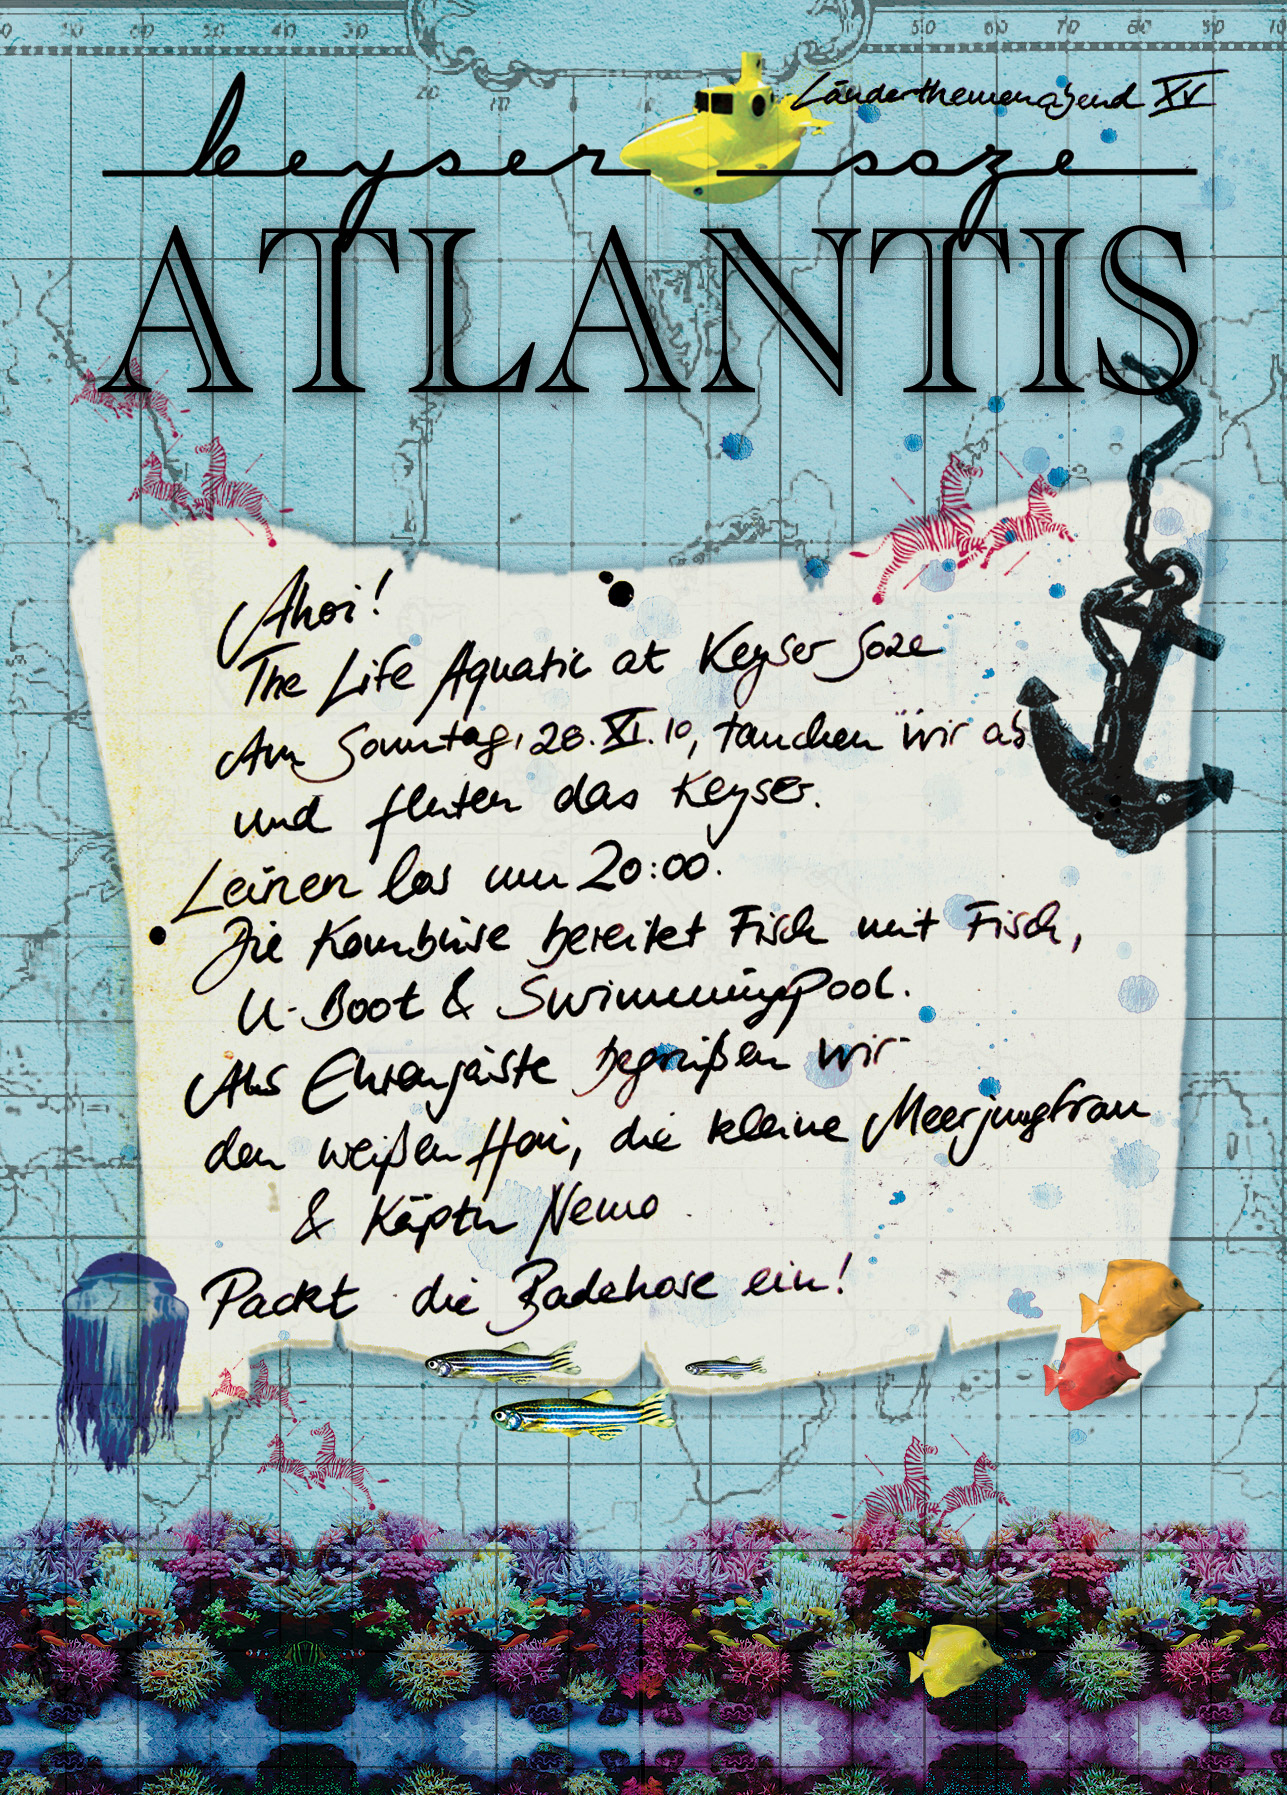 Länderthemenabend XV
keyser soze
ATLANTIS
Ahoi!
The Life Aquatic at Keyser Soze
Am Sonntag, 28.XI.10, tauchen wir ab
und fluten das Keyser.
Leinen los um 20:00.
Die Kombüse bereitet Fisch mit Fisch,
U-Boot & Swimmingpool.
Als Ehrengäste begrüßen wir
den weißen Hai, die kleine Meerjungfrau
& Käptn Nemo
Packt die Badehose ein!